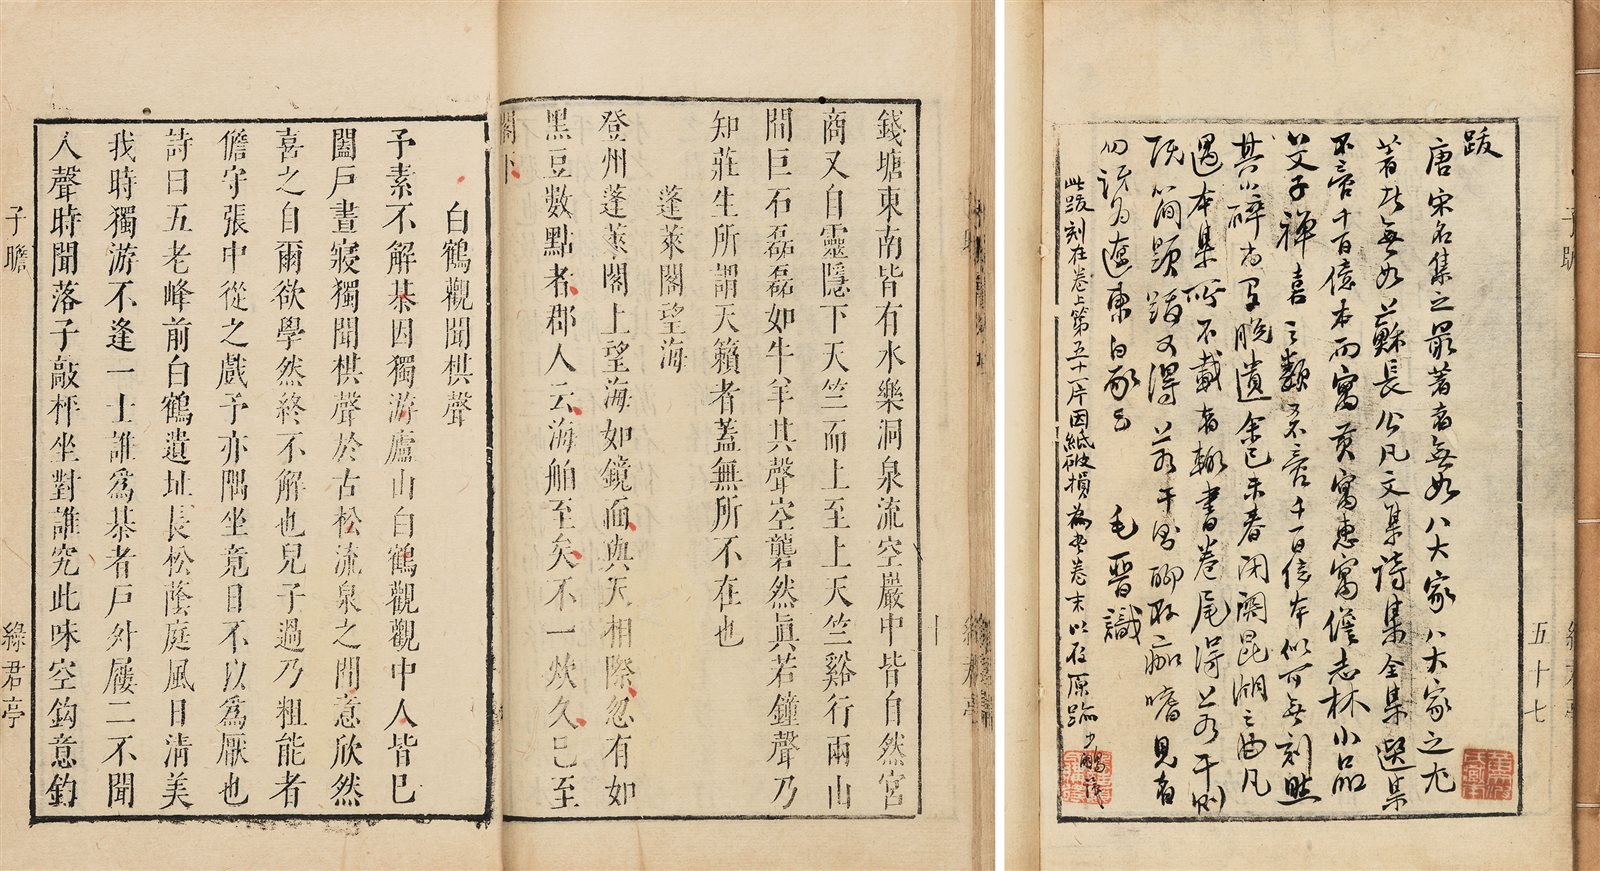 錢塘東南皆有水樂洞泉流空巖中皆自然宮
商又自靈隱下天竺而上至上天竺谿行兩山
間巨石磊磊如牛羊其聲空礲然眞若鐘聲乃
知莊生所謂天籟者蓋無所不在也
蓬萊閣望海
登州蓬萊閣上望海如鏡面與天相際忽有如
黑豆數點者郡人云海舶至矣不一炊久已至
閣下
白鶴觀聞棋聲
予素不解棊因獨游廬山白鶴觀觀中人皆巳
闔戶晝寢獨聞棋聲於古松流泉之間意欣然
喜之自爾欲學然終不解也兒子過乃粗能者
儋守張中從之戲予亦隅坐竟日不以爲厭也
詩曰五老峰前白鶴遺址長松蔭庭風日淸美
我時獨游不逢一士誰爲棊者戶外屨二不聞
人聲時聞落子敲枰坐對誰究此味空鈎意釣
子瞻
綠君亭
五十七
跋
唐宋名集之最著者無如八大家八大家之尤
著者無如蘇長公凡文集詩集全集選集
不啻千百億本而寓黃寓惠寓儋志林小品
艾子禪喜之類又不啻千百億本似可無刻然
其小碎尚多脫遺余己未春閉關昆湖之曲凡
遇本集所不載者輒書卷尾得若干則
既簡題跋又得若干則聊存痂嗜見者
勿訝為遼東白豕云 毛晉識
此跋刻在卷上第五十一斤因紙破損為書卷末以存原跡 少鵬識